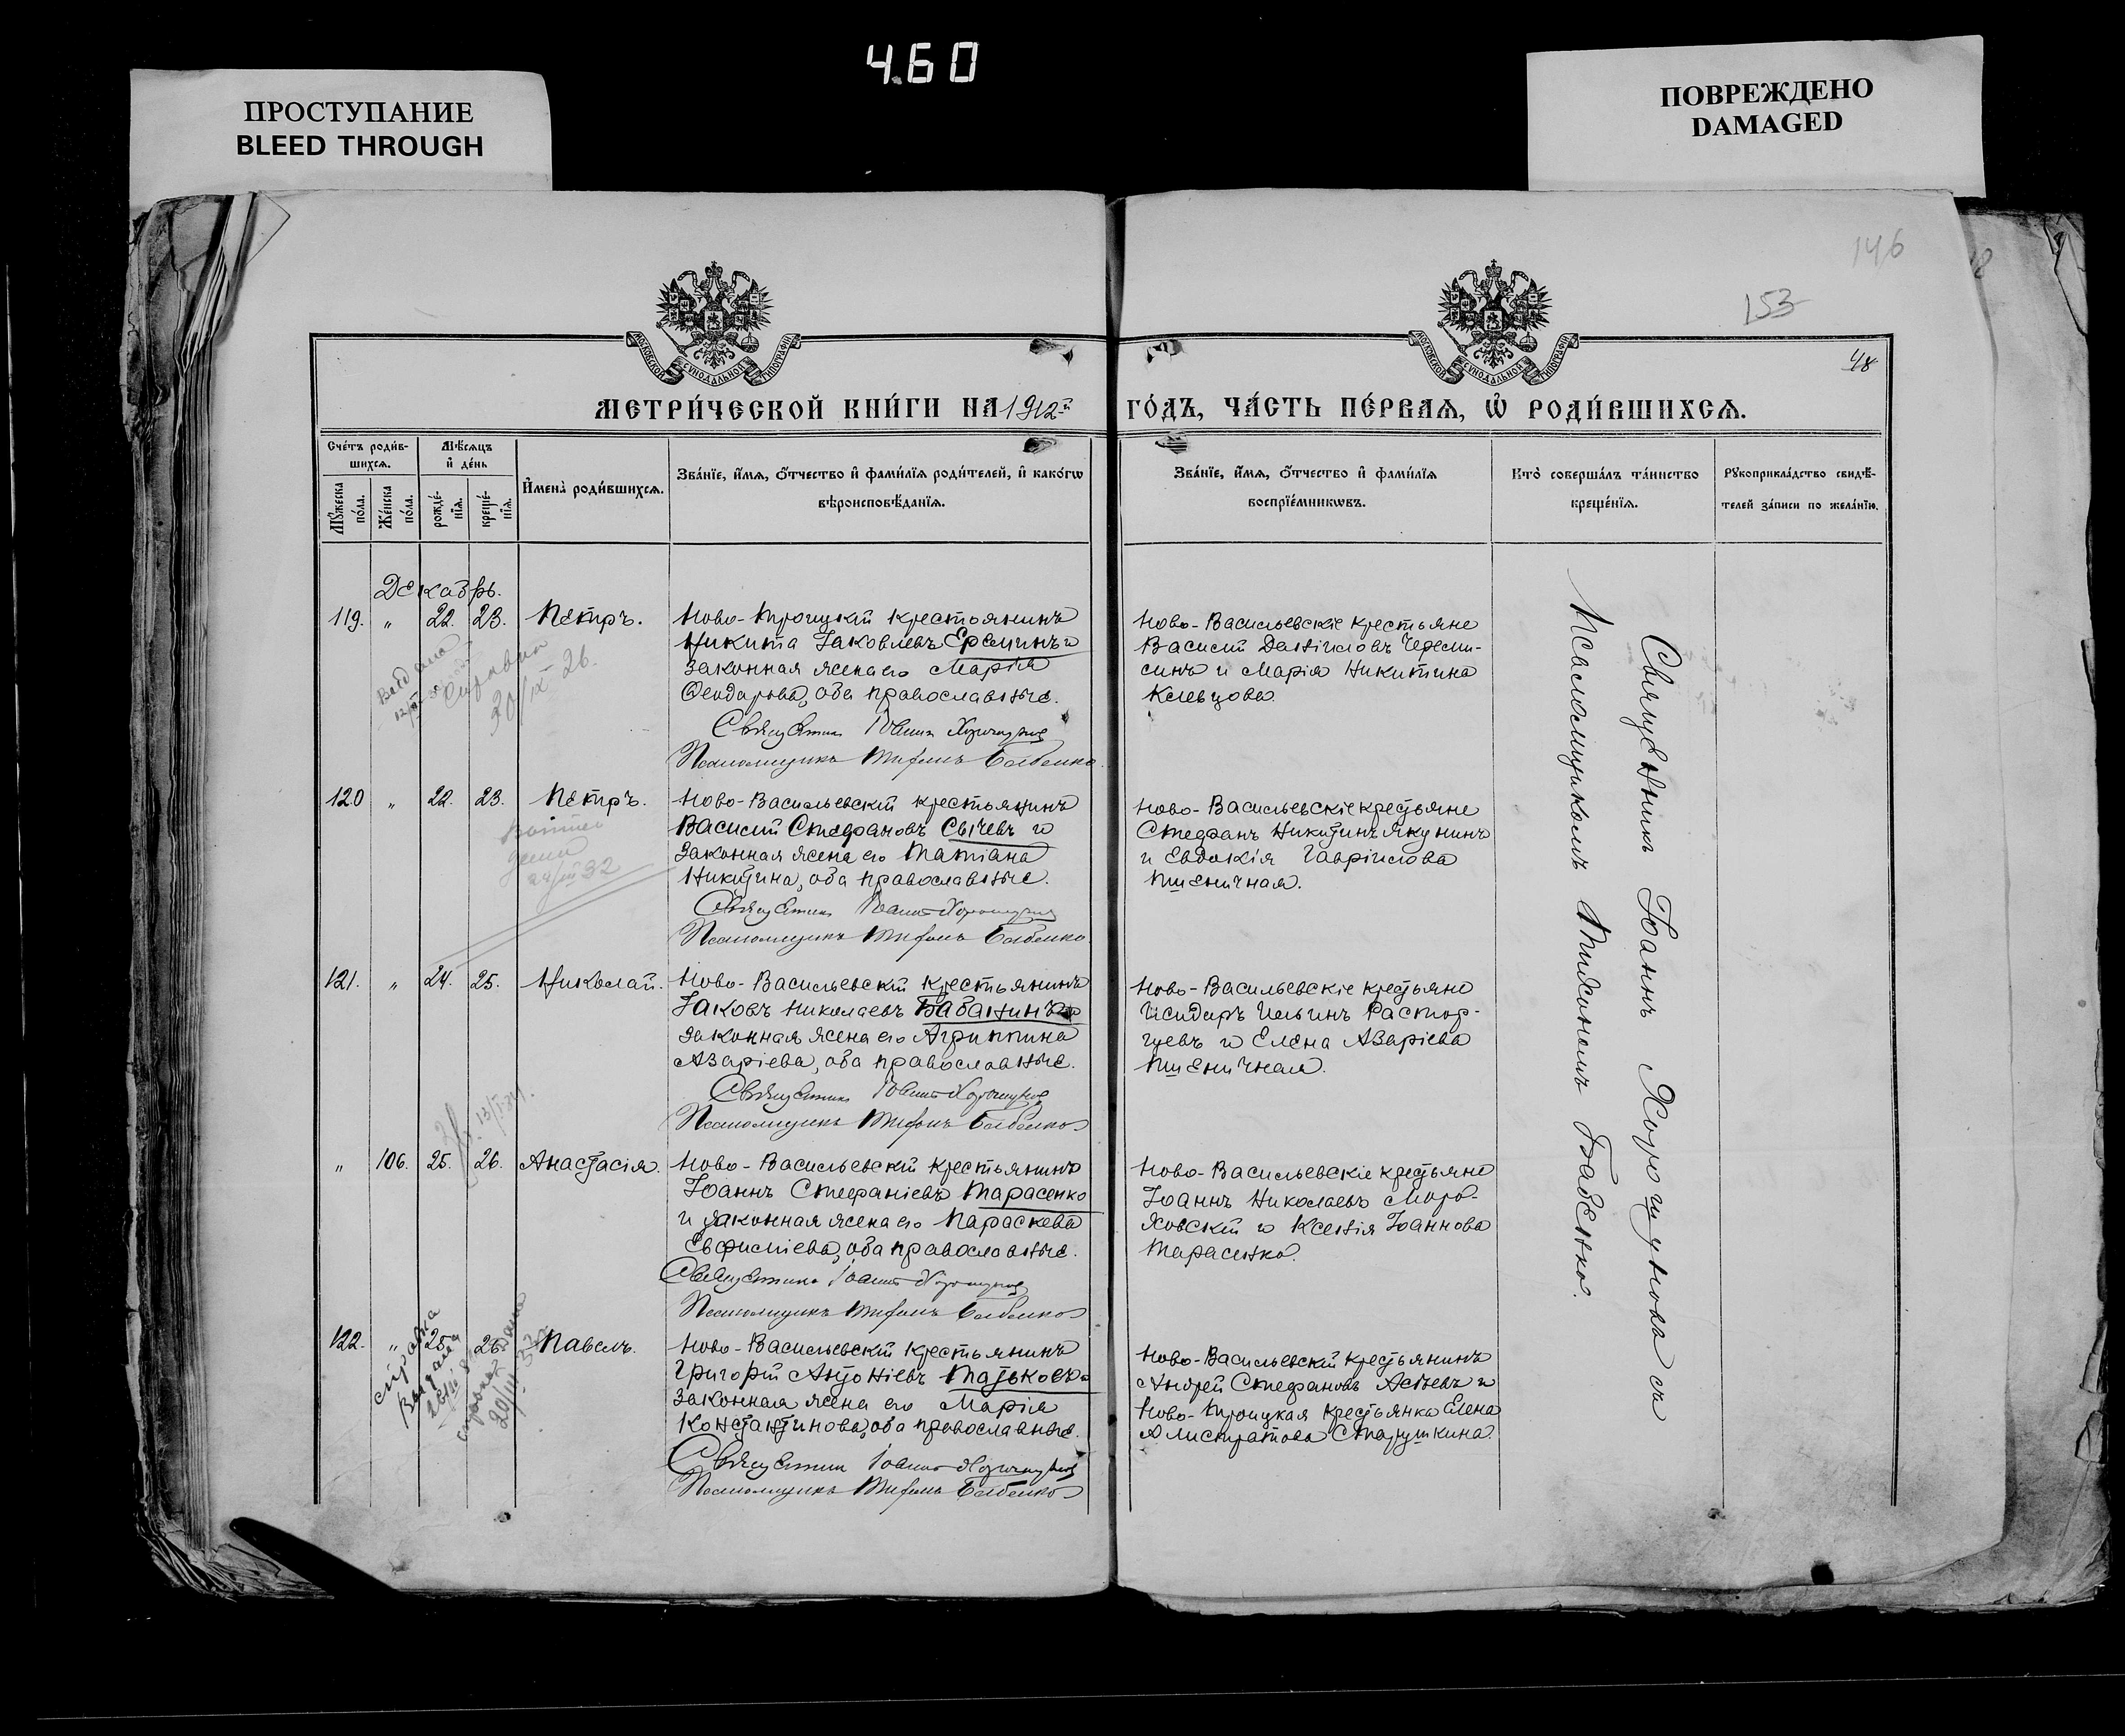 460
ПРОСТУПАНИЕ
BLEED THROUGH
ПОВРЕЖДЕНО
DAMAGED
146
153
48
МОСКОВСКОЙ СѴНОДАЛЬНОЙ ТИПОГРАФІИ
МОСКОВСКОЙ СѴНОДАЛЬНОЙ ТИПОГРАФІИ
МЕТРИ́ЧЕСКОЙ КНИ́ГИ НА 1912-й ГО́ДЪ, ЧА́СТЬ ПЕ́РВАЯ, Ѿ РОДИ́ВШИХСЯ.
Сче́тъ роди́в-
шихся.
Мѣ́сяцъ
и҆ де́нь
Му́жеска по́ла.
Же́нска по́ла.
рожде́-
нїя.
креще́-
нїя.
И҆мена̀ роди́вшихся.
Зва́нїе, и҆́мя, ѻ҆́тчество и҆ фами́лїя роди́телей, и҆ како́гѡ
вѣроисповѣ́данїя.
Зва́нїе, и҆́мя, ѻ҆́тчество и҆ фами́лїя
воспрїе́мникѡвъ.
Кто̀ соверша́лъ та́инство
креще́нїя.
Рꙋкоприкла́дство свидѣ́-
телей за́писи по жела́нїю.
Декабрь.
119. " 22. 23. Петръ.
Ново-Троицкій крестьянинъ
Никита Іаковлевъ Еремин и
законная жена его Марія
Ѳеодорова, оба православные.
Священникъ Іоаннъ Хорошунов
Псаломщикъ Тихонъ Бабенко.
Ново-Васильевскіе крестьяне
Василій Даніиловъ Череми-
синъ и Марія Никитина
Клевцова.
Выдана
справка
30/IX 26.
120 " 22. 23. Петръ.
Ново-Васильевскій крестьянинъ
Василій Стефановъ Сычевъ и
законная жена его Татіана
Никитина, оба православные.
Священникъ Іоаннъ Хорошунов
Псаломщикъ Тихонъ Бабенко.
Ново-Васильевскіе крестьяне
Стефанъ Никитинъ Якунинъ
и Евдокія Гавріилова
Пшеничная.
121. " 24. 25. Николай.
Ново-Васильевскій крестьянинъ
Іаковъ Николаевъ Бабанинъ и
законная жена его Агриппина
Азаріева, оба православные.
Священникъ Іоаннъ Хорошунов
Псаломщикъ Тихонъ Бабенко
Ново-Васильевскіе крестьяне
Исидоръ Ильинъ Растор-
гуевъ и Елена Азаріева
Пшеничная.
" 106. 25. 26. Анастасія.
Ново-Васильевскій крестьянинъ
Іоаннъ Стефаніевъ Тарасенко
и законная жена его Параскева
Евфиміева, оба православные.
Священникъ Іоаннъ Хорошунов
Псаломщикъ Тихонъ Бабенко
Ново-Васильевскіе крестьяне
Іоаннъ Николаевъ Моро-
ховскій и Ксенія Іоаннова
Тарасенко.
122. " 25. 26. Павелъ.
Ново-Васильевскій крестьянинъ
Григорій Антоніевъ Татьковъ и
законная жена его Марія
Константинова, оба православные.
Священникъ Іоаннъ Хорошунов
Псаломщикъ Тихонъ Бабенко
Ново-Васильевскій крестьянинъ
Андрей Стефановъ и
Ново-Троицкая крестьянка Елена
Алистратова Старушкина.
справка
Выдана
Священникъ Іоаннъ Хорошуновъ съ
Псаломщикомъ Тихономъ Бабенко.